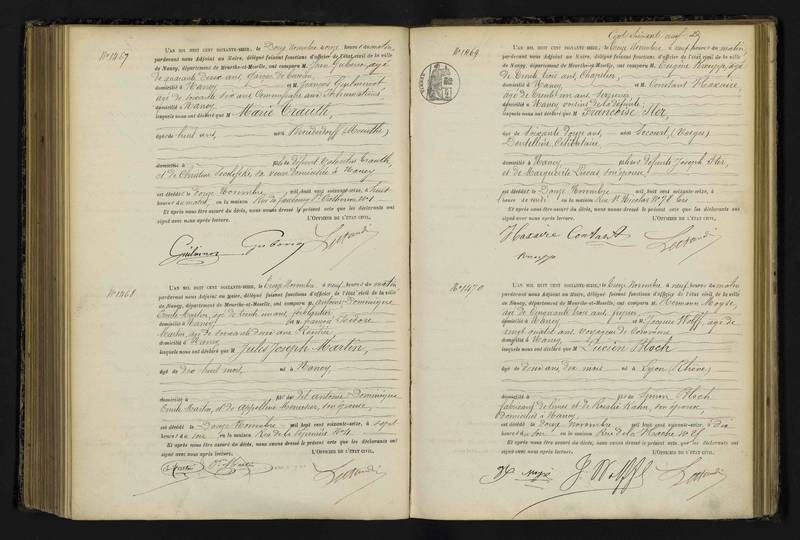 N° 1467
L'AN MIL HUIT CENT SOIXANTE-SEIZE, le Douze Novembre à onze heures du matin,
pardevant nous Adjoint au Maire, délégué faisant fonctions d'officier de l'état civil de la ville
de Nancy, département de Meurthe-et-Moselle, ont comparu M. Jean Guboury, âgé
de quarante deux ans
domicilié à Nancy et M François Guilminot
âgé de soixante six ans
domicilié à Nancy
lesquels nous ont déclaré que M Marie Trauth,
âgée de huit ans, née à (Meurthe)
domiciliée à fille de défunt Valentin Trauth,
et de Christine sa veuve domiciliée à Nancy
est décédée le Douze Novembre, mil huit cent soixante-seize, à huit
heures du matin, en la maison Rue du faubourg Ste Catherine N° 1
Et après nous être assuré du décès, nous avons dressé le présent acte que les déclarants ont
signé avec nous après lecture. L'OFFICIER DE L'ÉTAT CIVIL,
Guilminot Guboury
N° 1468
L'AN MIL HUIT CENT SOIXANTE-SEIZE, le Treize Novembre à neuf heures du matin
pardevant nous Adjoint au Maire, délégué faisant fonctions d'officier de l'état civil de la ville
de Nancy, département de Meurthe-et-Moselle, ont comparu M. Antoine Dominique
Emile Martin, âgé de trente ans,
domicilié à Nancy et M François Isidore
Martin, âgé de soixante ans Rentier
domicilié à Nancy
lesquels nous ont déclaré que M Jules Joseph Martin,
âgé de dix huit mois, né à Nancy,
domicilié à fils de dit Antoine Dominique
Emile Martin, et de Appoline son épouse,
est décédé le Douze Novembre mil huit cent soixante-seize, à sept
heures du soir, en la maison Rue de la Pépinière N° 4
Et après nous être assuré du décès, nous avons dressé le présent acte que les déclarants ont
signé avec nous après lecture. L'OFFICIER DE L'ÉTAT CIVIL,
N° 1469
L'AN MIL HUIT CENT SOIXANTE-SEIZE, le Treize Novembre à neuf heures du matin,
pardevant nous Adjoint au Maire, délégué faisant fonctions d'officier de l'état civil de la ville
de Nancy, département de Meurthe-et-Moselle, ont comparu M. Eugène Knepp, âgé
de trente trois ans Chapelier,
domicilié à Nancy et M Constant Haxaire,
âgé de trente un ans
domicilié à Nancy voisins de la défunte,
lesquels nous ont déclaré que M Françoise Ster,
âgée de soixante ans, née à Socourt (Vosges)
Dentellière, Célibataire,
domiciliée à Nancy, fille des défunts Joseph Ster,
et de Marguerite Lucas son épouse,
est décédée le Douze Novembre mil huit cent soixante-seize, à
heures de midi, en la maison Rue St Nicolas N° 78 bis
Et après nous être assuré du décès, nous avons dressé le présent acte que les déclarants ont
signé avec nous après lecture. L'OFFICIER DE L'ÉTAT CIVIL,
Haxaire Constant
N° 1470
L'AN MIL HUIT CENT SOIXANTE-SEIZE, le Treize Novembre à neuf heures du matin
pardevant nous Adjoint au Maire, délégué faisant fonctions d'officier de l'état civil de la ville
de Nancy, département de Meurthe-et-Moselle, ont comparu M. Hermann Moyse,
âgé de Cinquante trois ans,
domicilié à Nancy et M Jacques Wolff, âgé de
vingt quatre ans voyageur de Commerce
domicilié à Nancy,
lesquels nous ont déclaré que M Lucien Bloch
âgé de deux ans dix mois né à Lyon (Rhône)
domicilié à fils de Simon Bloch
fabricant et de Rosalie Kahn, son épouse,
domiciliés à Nancy,
est décédé le Douze Novembre, mil huit cent soixante-seize, à dix
heures du soir, en la maison Rue de la Hache N° 25
Et après nous être assuré du décès, nous avons dressé le présent acte que les déclarants ont
signé avec nous après lecture. L'OFFICIER DE L'ÉTAT CIVIL,
J. Wolff